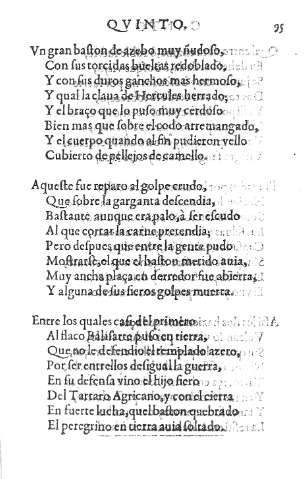 QVINTO. 95
Vn gran baston de azebo muy ñudoso,
Con sus torcidas bueltas redoblado,
Y con sus duros ganchos mas hermoso,
Y qual la claua de Hercules herrado;
Y el braço que lo puso muy cerdoso
Bien mas que sobre el codo arremangado,
Y el cuerpo quando al fin pudieron vello
Cubierto de pellejos de camello.
Aqueste fue reparo al golpe crudo,
Que sobre la garganta descendia,
Bastante aunque era palo, à ser escudo
Al que cortar la carne pretendia;
Pero despues que entre la gente pudo
Mostrarse, el que el baston metido auia,
Muy ancha plaça en derredor fue abierta,
Y alguna de sus fieros golpes muerta.
Entre los quales casi del primero
Al flaco Balisarte puso en tierra,
Que no le defendio el templado azero,
Por ser entrellos desigual la guerra,
En su defensa vino el hijo fiero
Del Tartaro Agricano, y con el cierra
En fuerte lucha, quel baston quebrado
El peregrino en tierra auia soltado.